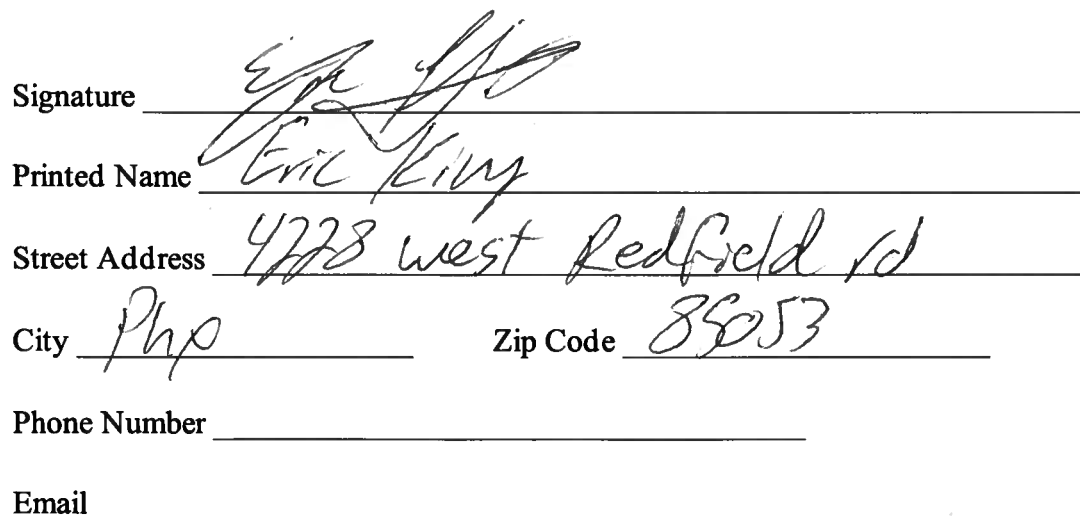 Signature
Printed Name Eric King
Street Address 4228 west Redfield rd
City Php Zip Code 85053
Phone Number
Email